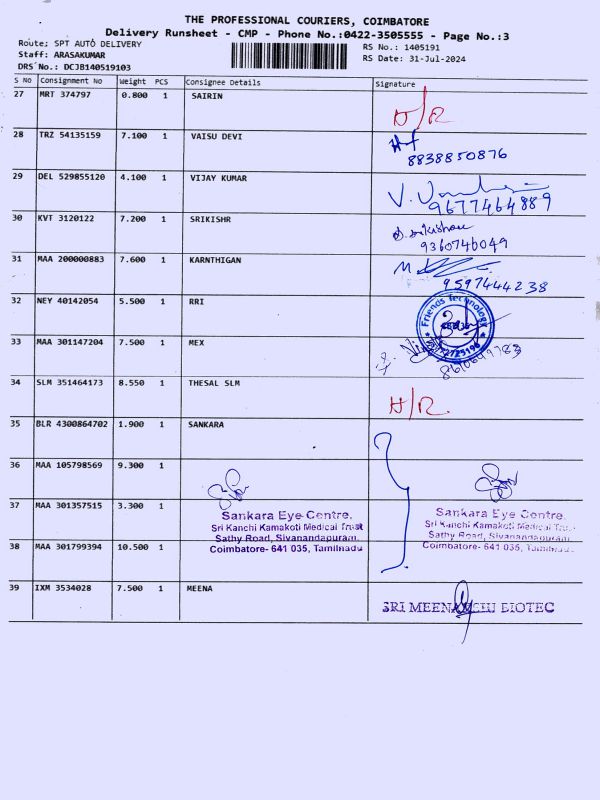 THE PROFESSIONAL COURIERS, COIMBATORE
Delivery Runsheet - CMP - Phone No.:0422-3505555 - Page No.:3
Route; SPT AUTO DELIVERY
RS No.: 1405191
Staff: ARASAKUMAR
RS Date: 31-Jul-2024
DRS No.: DCJB140519103
S No Consignment No Weight PCS Consignee Details Signature
27 MRT 374797 0.800 1 SAIRIN
H/R
28 TRZ 54135159 7.100 1 VAISU DEVI
8838850876
29 DEL 529855120 4.100 1 VIJAY KUMAR
9677464889
30 KVT 3120122 7.200 1 SRIKISHR
9360746049
31 MAA 200000883 7.600 1 KARNTHIGAN
9597444238
32 NEY 40142054 5.500 1 RRI
Friends Technology
33 MAA 301147204 7.500 1 MEX
34 SLM 351464173 8.550 1 THESAL SLM
H/R.
35 BLR 4300864702 1.900 1 SANKARA
36 MAA 105798569 9.300 1
37 MAA 301357515 3.300 1
Sankara Eye Centre.
Sri Kanchi Kamakoti Medical Trust
Sathy Road, Sivanandapuram,
Coimbatore- 641 035, Tamilnadu
Sankara Eye Centre.
Sri Kanchi Kamakoti Medical Trust
Sathy Road, Sivanandapuram,
Coimbatore- 641 035, Tamilnadu
38 MAA 301799394 10.500 1
39 IXM 3534028 7.500 1 MEENA
SRI MEENAKSHI BIOTEC